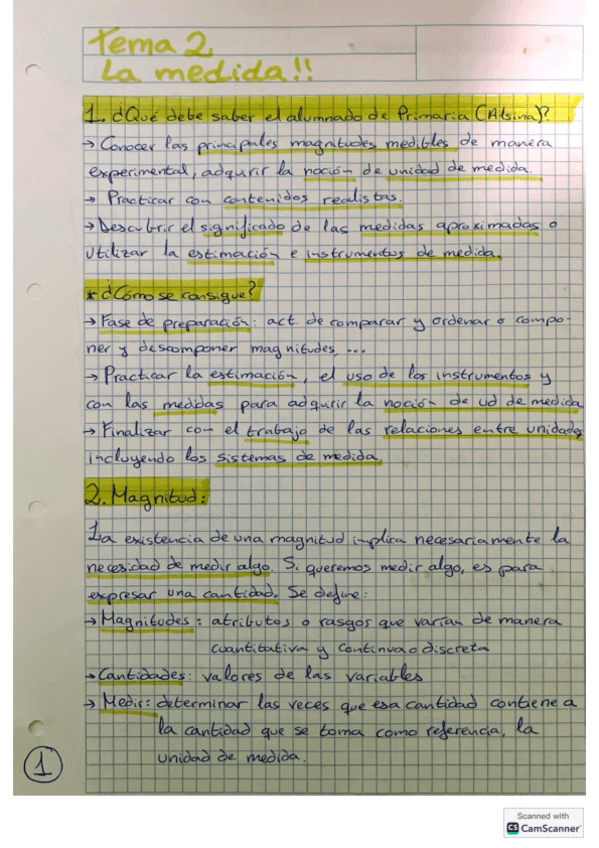 Tema 2
La medida!!
1. ¿Qué debe saber el alumnado de Primaria (Alsina)?
→ Conocer las principales magnitudes medibles de manera
experimental, adquirir la noción de unidad de medida.
→ Practicar con contenidos realistas.
→ Descubrir el significado de las medidas aproximadas o
utilizar la estimación e instrumentos de medida.
* ¿Cómo se consigue?
→ Fase de preparación: act. de comparar y ordenar o compo-
ner y descomponer magnitudes, ...
→ Practicar la estimación, el uso de los instrumentos y
con las medidas para adqurir la noción de ud de medida
→ Finalizar con el trabajo de las relaciones entre unidades
incluyendo los sistemas de medida.
2. Magnitud:
La existencia de una magnitud implica necesariamente la
necesidad de medir algo. Si queremos medir algo, es para
expresar una cantidad. Se define:
→ Magnitudes: atributos o rasgos que varían de manera
cuantitativa y continua o discreta
→ Cantidades: valores de las variables
→ Medir: determinar las veces que esa cantidad contiene a
la cantidad que se toma como referencia, la
unidad de medida.
1
Scanned with
CS CamScanner